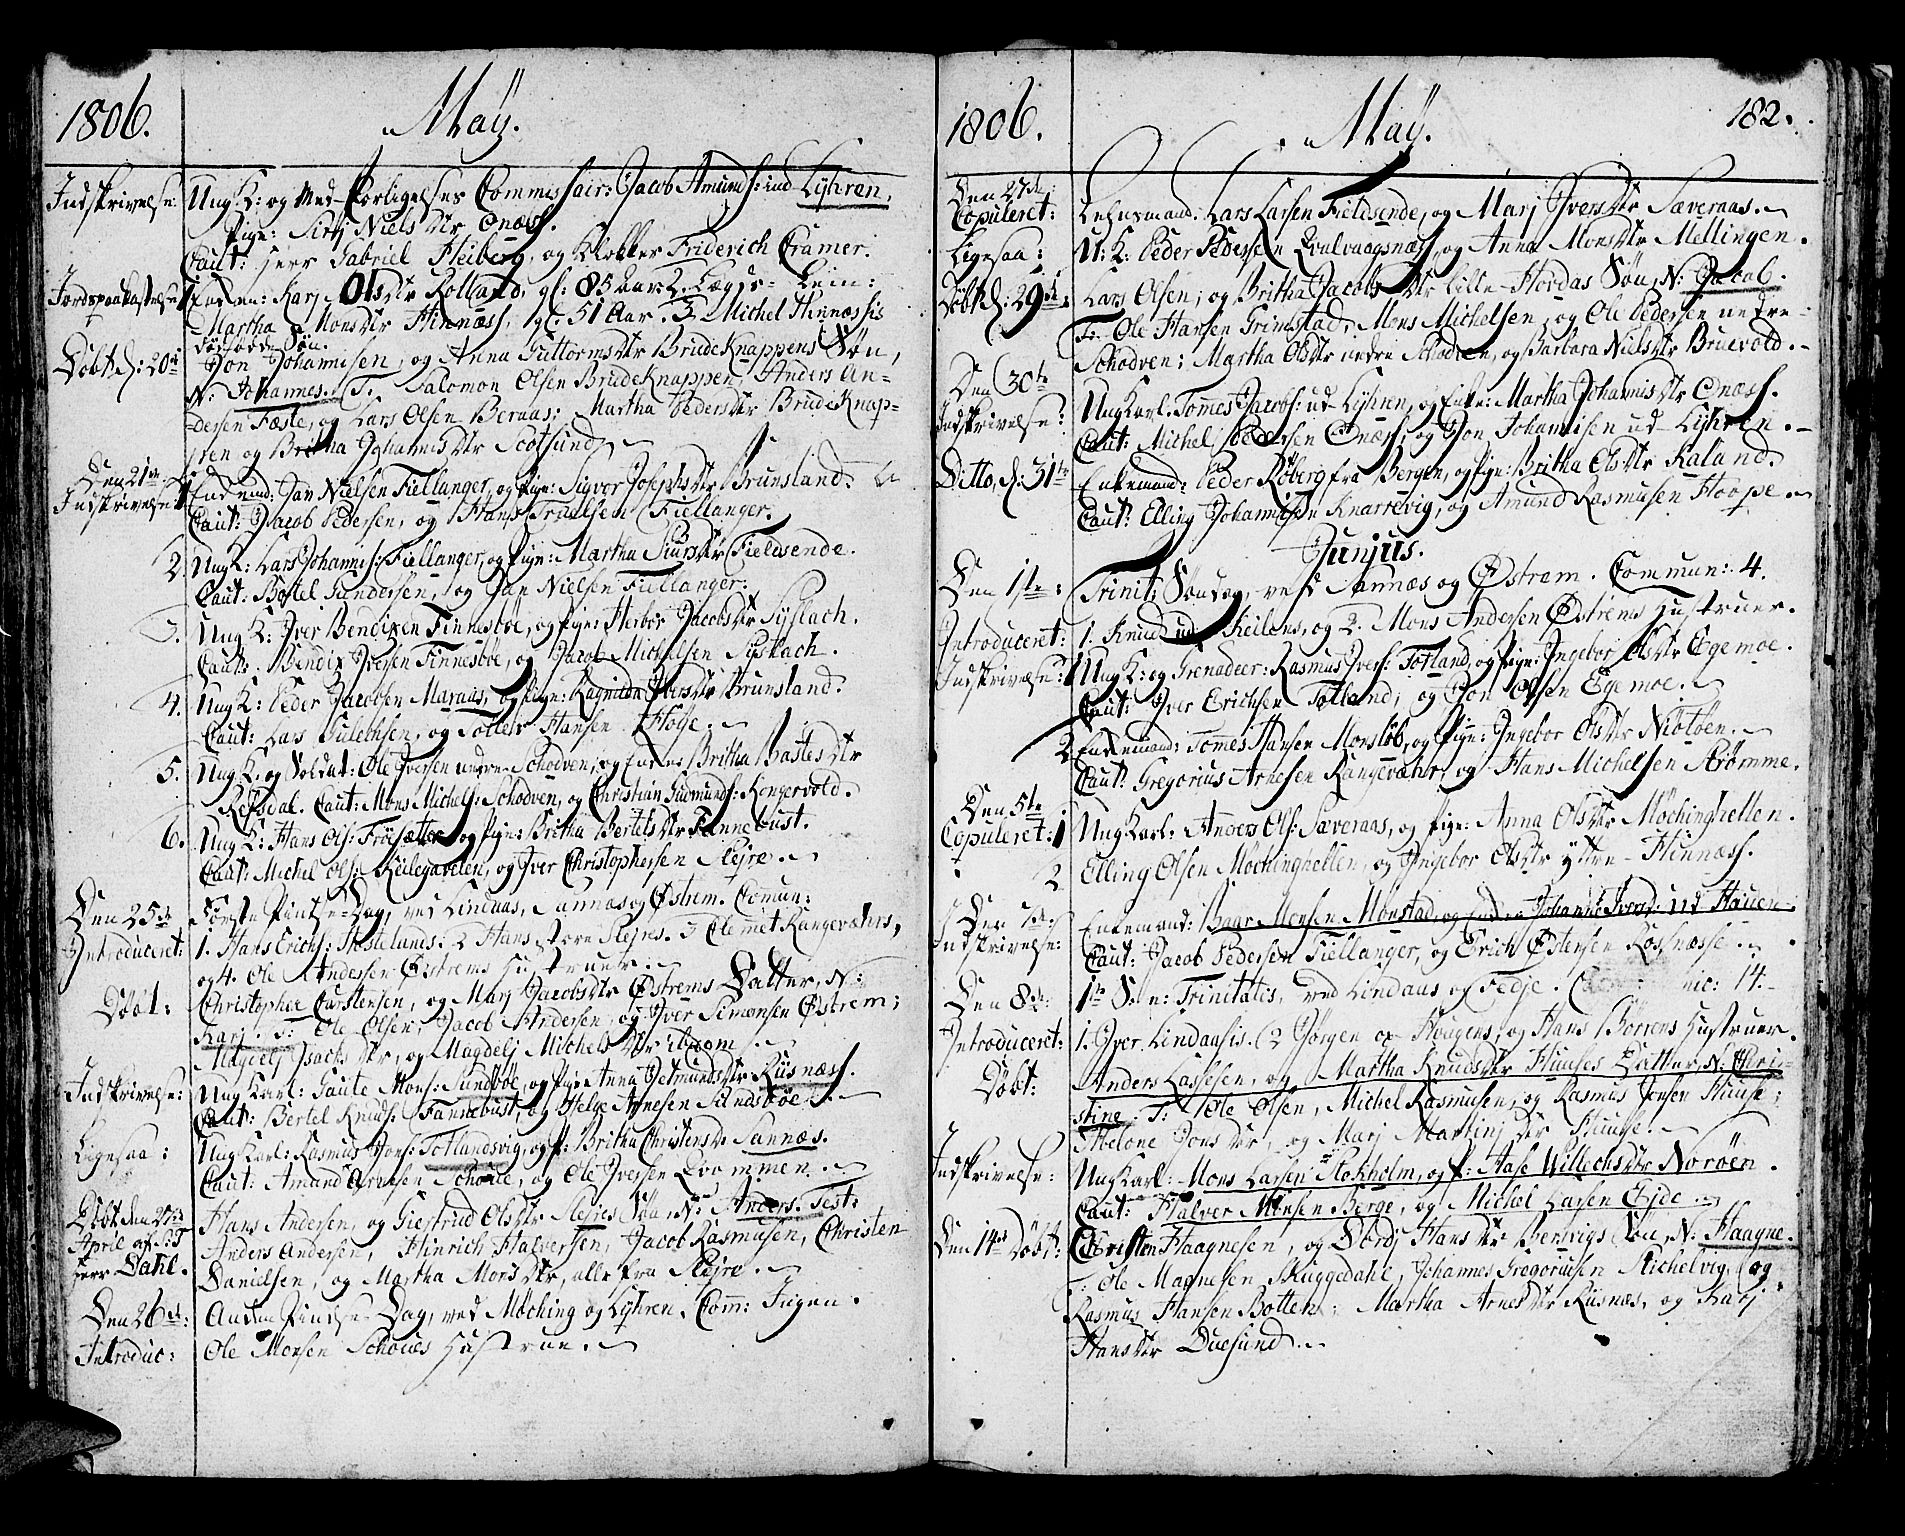 1806.
Maÿ.
Indskrivelse: Ung K: og Med-Forligelses Commissair: Jacob Amunds: ind-Lÿhren,
Pige: Sirj Niels Dtr Onæss.
Caut: Herr Gabriel Heiberg, og Klokker Friderich Cramer.
Jordspaakastelse 1 Enken: Karj Ols Dtr Rolland, gl: 85 Aar. 2. Lægds-Lem:
Martha Mons Dtr Hinnæss, gl: 51 Aar. 3. Michel Hinnæssis
dödfödde Sön.
Döbt d: 20de Jon Johannisen, og Anna Guttorms Dtr Brudeknappens Sön,
N: Johannes. T: Salomon Olsen Brudeknappen, Anders An-
dersen Fæste, og Lars Olsen Beraas: Martha Peders Dtr Brudeknap-
pen og Britha Johannis Dtr Scotsund.
Den 21de
Indskrivelse 1. Enkemd: Jan Nielsen Fiellanger, og Pige: Sigvor Josephs Dtr Brunsland.
Caut: Jacob Pedersen, og Hans Truelsen Fiellanger.
2. Ung K: Lars Johannis: Fiellanger, og Pige: Martha Siurs Dtr Fieldsende.
Caut: Bottel Gundersen, og Jan Nielsen Fiellanger.
3. Ung K: Iver Bendixen Finnesböe, og Pige: Herbor Jacobs Dtr Sÿslach.
Caut: Bendix Iversen Finnesböe, og Jacob Michelsen Sÿslach.
4. Ung K: Peder Jacobsen Maraas, og Pige: Ragnilda Ivers Dtr Brunsland.
Caut: Lars Gulechsen, og Tollev Hansen Hope.
5. Ung K: og Soldat: Ole Iversen nedre-Schodven, og Enke: Britha Bastes Dtr
Reksdal. Caut: Mons Michels: Schodven, og Christian Gudmunds: Kongervold.
6. Ung K: Hans Ols: Fröjsættee og Pige: Britha Bertels Dtr Fannebust.
Caut: Michel Ols: Keilegavelen, og Iver Christophersen Slejre.
Den 25de Förste Pintze-Dag, ved Lindaas, Sannæs og Östrem. Comun:
Introduceret: 1. Hans Erichs: Hestelands: 2 Hans store Slejres. 3 Ole Rangeværs,
og 4. Ole Andersen Östrems Hustruer.
Döbt: Christopher Carstensen, og Marj Jacobs Dtr Östrems Datter, N:
Karj. T: Ole Olsen, Jacob Andersen, og Iver Simonsen Östrem;
Magdelj Isachs Dtr, og Magdelj Michels Dtr
Indskrivelse: Ung Karl: Gaute Mons: Sundböe, og Pige Anna Detmunds Dtr Risnæss.
Caut: Bertel Knuds: Fannebust, og Helge Arnesen Sundsböe.
Ligesaa: Ung Karl: Rasmus Jons: Totlandsvig, og P: Britha Christens D: Sannæs.
Caut: Amund Arnesen Schodve, og Ole Iversen Qvammen.
Döbt den 27de Hans Andersen, og Giertrud Ols Dtr Slejres Sön, N: Anders. Test:
April af S:T Anders Andersen, Hinrich Halversen, Jacob Rasmusen, Christen
Herr Dahl. Danielsen, og Martha Mons Dtr, alle fra Slejre.
Den 26de: Anden Pindse-Dag, ved Möching og Lÿhren. Com: Ingen.
Introduc: Ole Monsen Schoues Hustrue.
1806.
Maÿ.
182.
Den 27de
Copuleret: Lehnsmand: Lars Larsen Fieldsende, og Marj Ivers Dtr Sæveraas.
Ligesaa: U: K: Peder Pedersen Qvalvaagnæss, og Anna Mons Dtr Mellingen.
Döbt d: 29de: Lars Olsen, og Britha Jacobs Dtr lille-Hordas Sön, N: Jacob.
T: Ole Hansen Grimstad, Mons Michelsen, og Ole Pedersen nedre-
Schodven; Martha Ols Dtr nedre Schodven, og Barbara Niels Dtr Bruevold.
Den 30te
Indskrivelse: Ung Karl. Tomes Jacobs: ud-Lÿhren, og Enke: Martha Johannis Dtr Onæss.
Caut: Michel Pedersen Onæss, og Jon Johannisen ud-Lÿhren.
Ditto, d: 31te Enkemand: Peder Röberg fra Bergen, og Pige: Britha Ols Dtr Kaland.
Caut: Elling Johannisen Knarrevig, og Amund Rasmusen Hoope.
Junjus.
Den 1ste: Trinit: Söndag, ved Sannæs og Östrem. Commun: 4.
Introduceret: 1. Knud ud-Keilens, og 2. Mons Andersen Östrems Hustruer.
Indskrivelse: 1 Ung K: og Grenadeer: Rasmus Ivers: Totland, og Pige: Ingebor Ols Dtr Egemoe.
Caut: Iver Erichsen Totland, og Jon Olsen Egemoe.
2 Enkemand: Tomes Hansen Monslöb, og Pige: Ingebor Ols Dtr Niotöen.
Caut: Gregorius Arnesen Rangevæhr, og Hans Michelsen Strömme.
Den 5te
Copuleret: 1 Ung Karl: Anders Ols: Sæveraas, og Pige: Anna Ols Dtr Möchinghellen.
2 Elling Olsen Möchinghellen, og Ingebor Ols Dtr ÿttre-Hinnæss.
Den 7de
Indskrivelse: Enkemand: Baar Monsen Monstad, og Enken Johanne Ivers: ud-Hauen
Caut: Jacob Pedersen Fiellanger, og Erich Östensen Rossnæsse.
Den 8de: 1te S: e: Trinitatis, ved Lindaas og Fedje. nic: 14.
Introduceret: 1. Iver Lindaasis. 2 Jörgen Haugens, og Hans Börrens Hustruer.
Döbt: Anders Lassesen, og Martha Knuds Dtr Huuses Datter, N: Chri-
stine. T: Ole Olsen, Michel Rasmusen, og Rasmus Jensen Huuse;
Helone Jons Dtr, og Marj Martinj Dtr Huuse.
Indskrivelse: Ung Karl: Mons Larsen Stokholm, og P: Aase Willechs Dtr Noröen.
Caut: Halver Monsen Berge, og Michel Larsen Ejde.
Den 14de Döbt: Christen Haagnesen, og Dordj Hans Dtr Bensvigs Sön, N: Haagne.
T: Ole Magnesen Skuggedahl, Johannes Gregoriusen Stichelvig, og
Rasmus Hansen Botten; Martha Arnes Dtr Risnæs, og Karj
Hans Dtr Duesund.